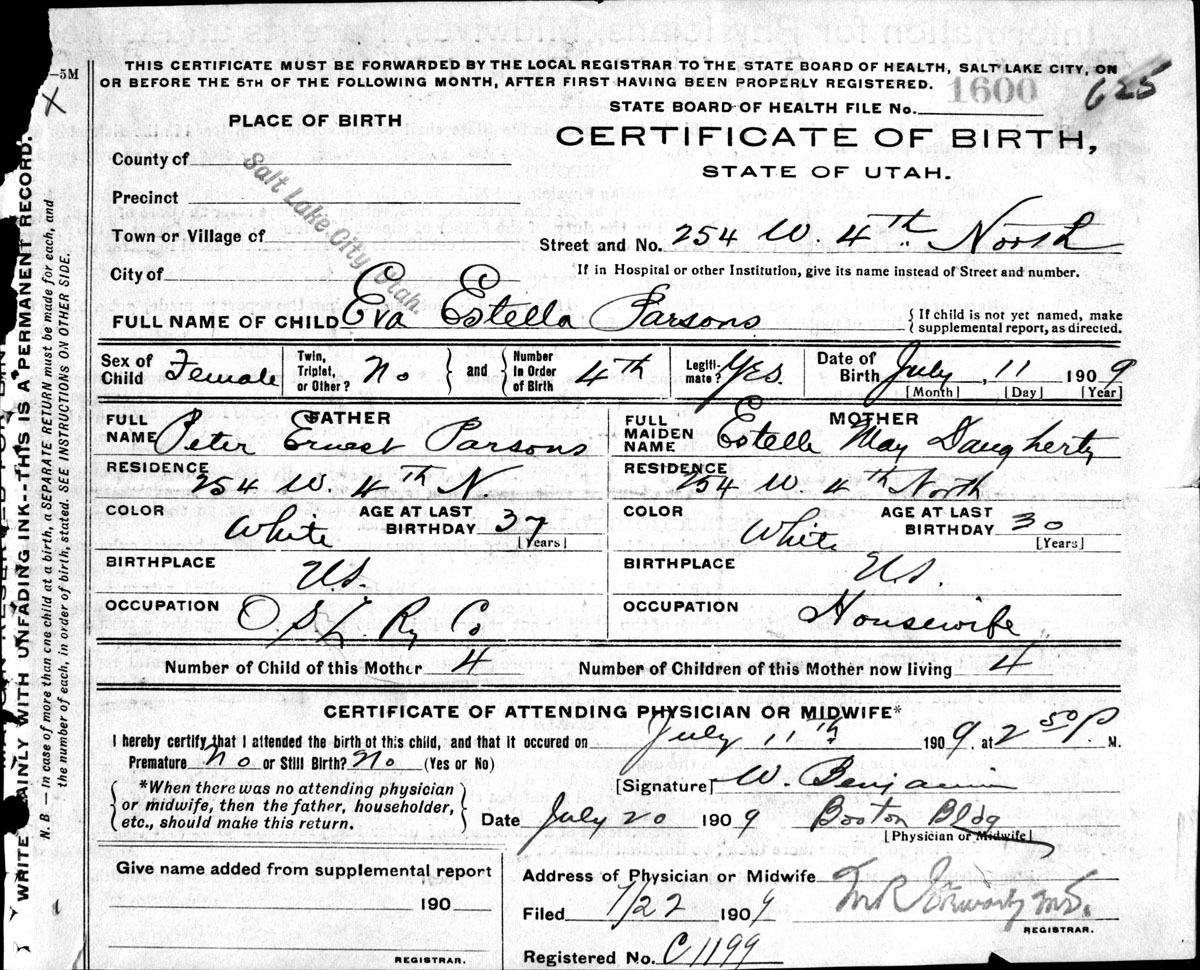 -5M
THIS CERTIFICATE MUST BE FORWARDED BY THE LOCAL REGISTRAR TO THE STATE BOARD OF HEALTH, SALT LAKE CITY, ON
OR BEFORE THE 5TH OF THE FOLLOWING MONTH, AFTER FIRST HAVING BEEN PROPERLY REGISTERED.
1600 625
STATE BOARD OF HEALTH FILE No.
PLACE OF BIRTH
CERTIFICATE OF BIRTH,
STATE OF UTAH.
County of
Precinct
Town or Village of
City of
Salt Lake City Utah.
Street and No. 254 W. 4th North
If in Hospital or other Institution, give its name instead of Street and number.
FULL NAME OF CHILD Eva Estella Parsons {If child is not yet named, make
supplemental report, as directed.
Sex of Child Female Twin, Triplet, or Other? No } and { Number in Order of Birth 4th Legiti-mate? Yes. Date of Birth July, 11 1909
[Month] [Day] [Year]
FATHER MOTHER
FULL NAME Peter Ernest Parsons FULL MAIDEN NAME Estella May Daugherty
RESIDENCE 254 W. 4th N. RESIDENCE 254 W 4th North
COLOR White AGE AT LAST BIRTHDAY 37 [Years] COLOR White AGE AT LAST BIRTHDAY 30 [Years]
BIRTHPLACE U.S. BIRTHPLACE U.S.
OCCUPATION O.S.L. Ry Co OCCUPATION Housewife
Number of Child of this Mother 4 Number of Children of this Mother now living 4
CERTIFICATE OF ATTENDING PHYSICIAN OR MIDWIFE*
I hereby certify that I attended the birth of this child, and that it occured on July 11th 1909, at 2 50 P. M.
Premature No or Still Birth? No (Yes or No)
{*When there was no attending physician
or midwife, then the father, householder,
etc., should make this return.}
[Signature] W. Benjamin
Date July 20 1909 Boston Bldg
[Physician or Midwife]
Give name added from supplemental report
190
REGISTRAR.
Address of Physician or Midwife
Filed 7/22 1909
REGISTRAR.
Registered No. C1199
WRITE PLAINLY WITH UNFADING INK---THIS IS A PERMANENT RECORD.
N. B.—In case of more than one child at a birth, a SEPARATE RETURN must be made for each, and
the number of each, in order of birth, stated. SEE INSTRUCTIONS ON OTHER SIDE.